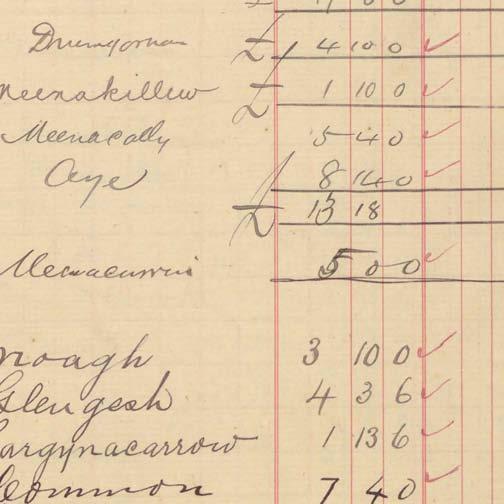 £ 4 10 0
Meenakillew £ 1 10 0
Meenacally 5 4 0
8 14 0
£ 13 18
5 0 0
3 10 0
Glengesh 4 3 6
argynacarrow 1 13 6
Common 7 4 0